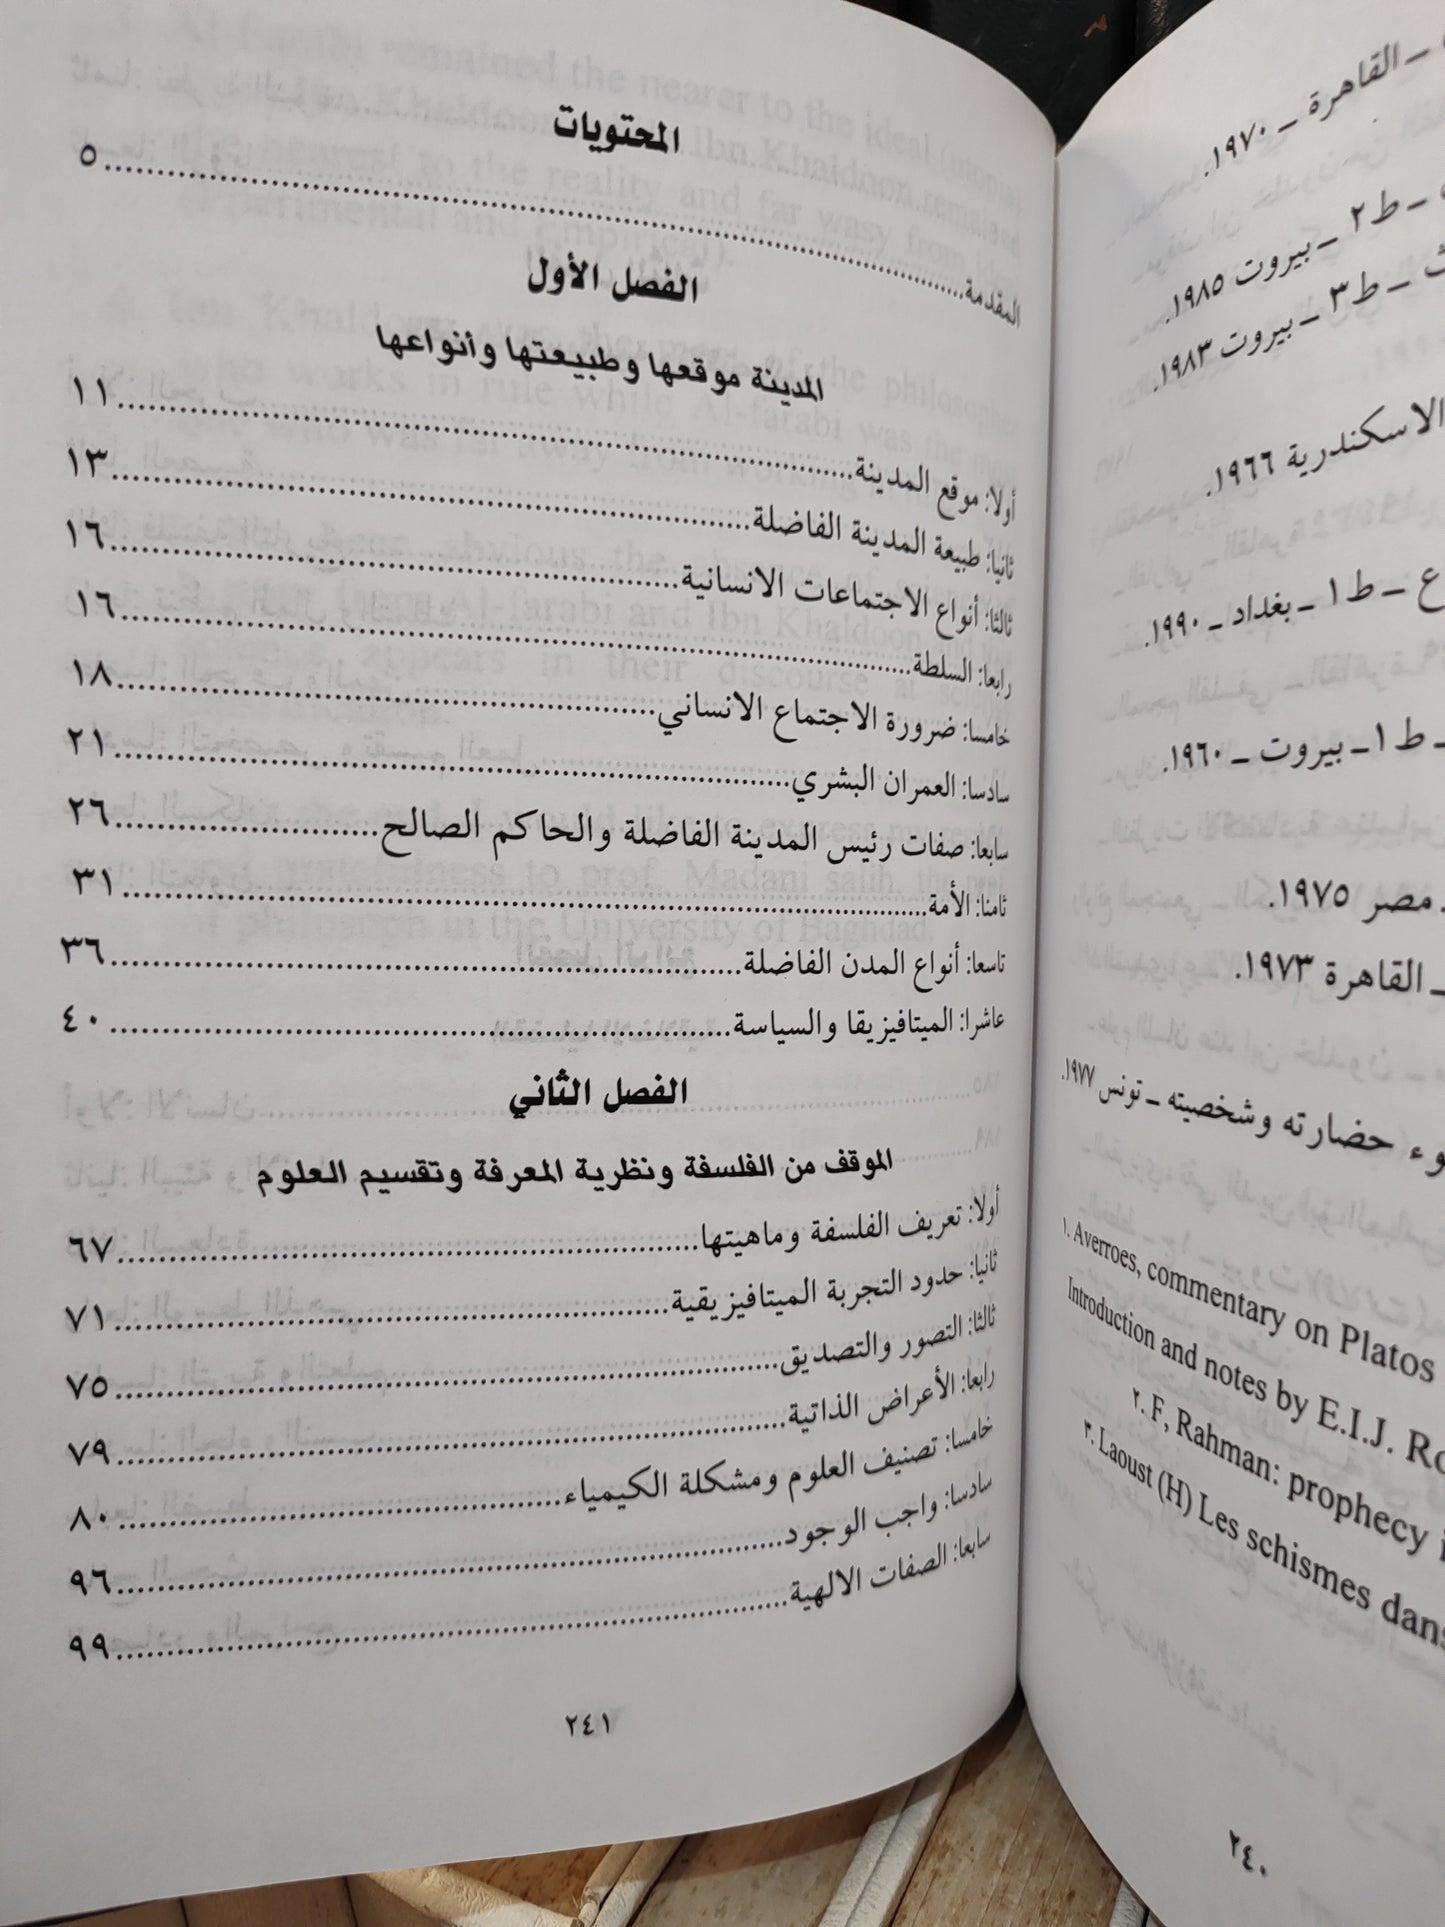 ـ القاهرة ـ ١٩٧٠.
ـ ط٢ ـ بيروت ١٩٨٥.
ـ ط٣ ـ بيروت ١٩٨٣.
الاسكندرية ١٩٦٦.
ع ـ ط١ ـ بغداد ـ ١٩٩٠.
ـ ط١ـ بيروت ـ ١٩٦٠.
ـ مصر ١٩٧٥.
ـ القاهرة ١٩٧٣.
حضارته وشخصيته ـ تونس ١٩٧٧.
١. Averroes, commentary on Platos
Introduction and notes by E.I.J.
٢. F, Rahman: prophecy
٣. Laoust (H) Les schismes dans
٢٤٠
المحتويات
المقدمة..........٥
الفصل الأول
المدينة موقعها وطبيعتها وأنواعها
أولا: موقع المدينة..........١١
ثانيا: طبيعة المدينة الفاضلة..........١٣
ثالثا: أنواع الاجتماعات الانسانية..........١٦
رابعا: السلطة..........١٦
خامسا: ضرورة الاجتماع الانساني..........١٨
سادسا: العمران البشري..........٢١
سابعا: صفات رئيس المدينة الفاضلة والحاكم الصالح..........٢٦
ثامنا: الأمة..........٣١
تاسعا: أنواع المدن الفاضلة..........٣٦
عاشرا: الميتافيزيقا والسياسة..........٤٠
الفصل الثاني
الموقف من الفلسفة ونظرية المعرفة وتقسيم العلوم
أولا: تعريف الفلسفة وماهيتها..........٦٧
ثانيا: حدود التجربة الميتافيزيقية..........٧١
ثالثا: التصور والتصديق..........٧٥
رابعا: الأعراض الذاتية..........٧٩
خامسا: تصنيف العلوم ومشكلة الكيمياء..........٨٠
سادسا: واجب الوجود..........٩٦
سابعا: الصفات الالهية..........٩٩
٢٤١